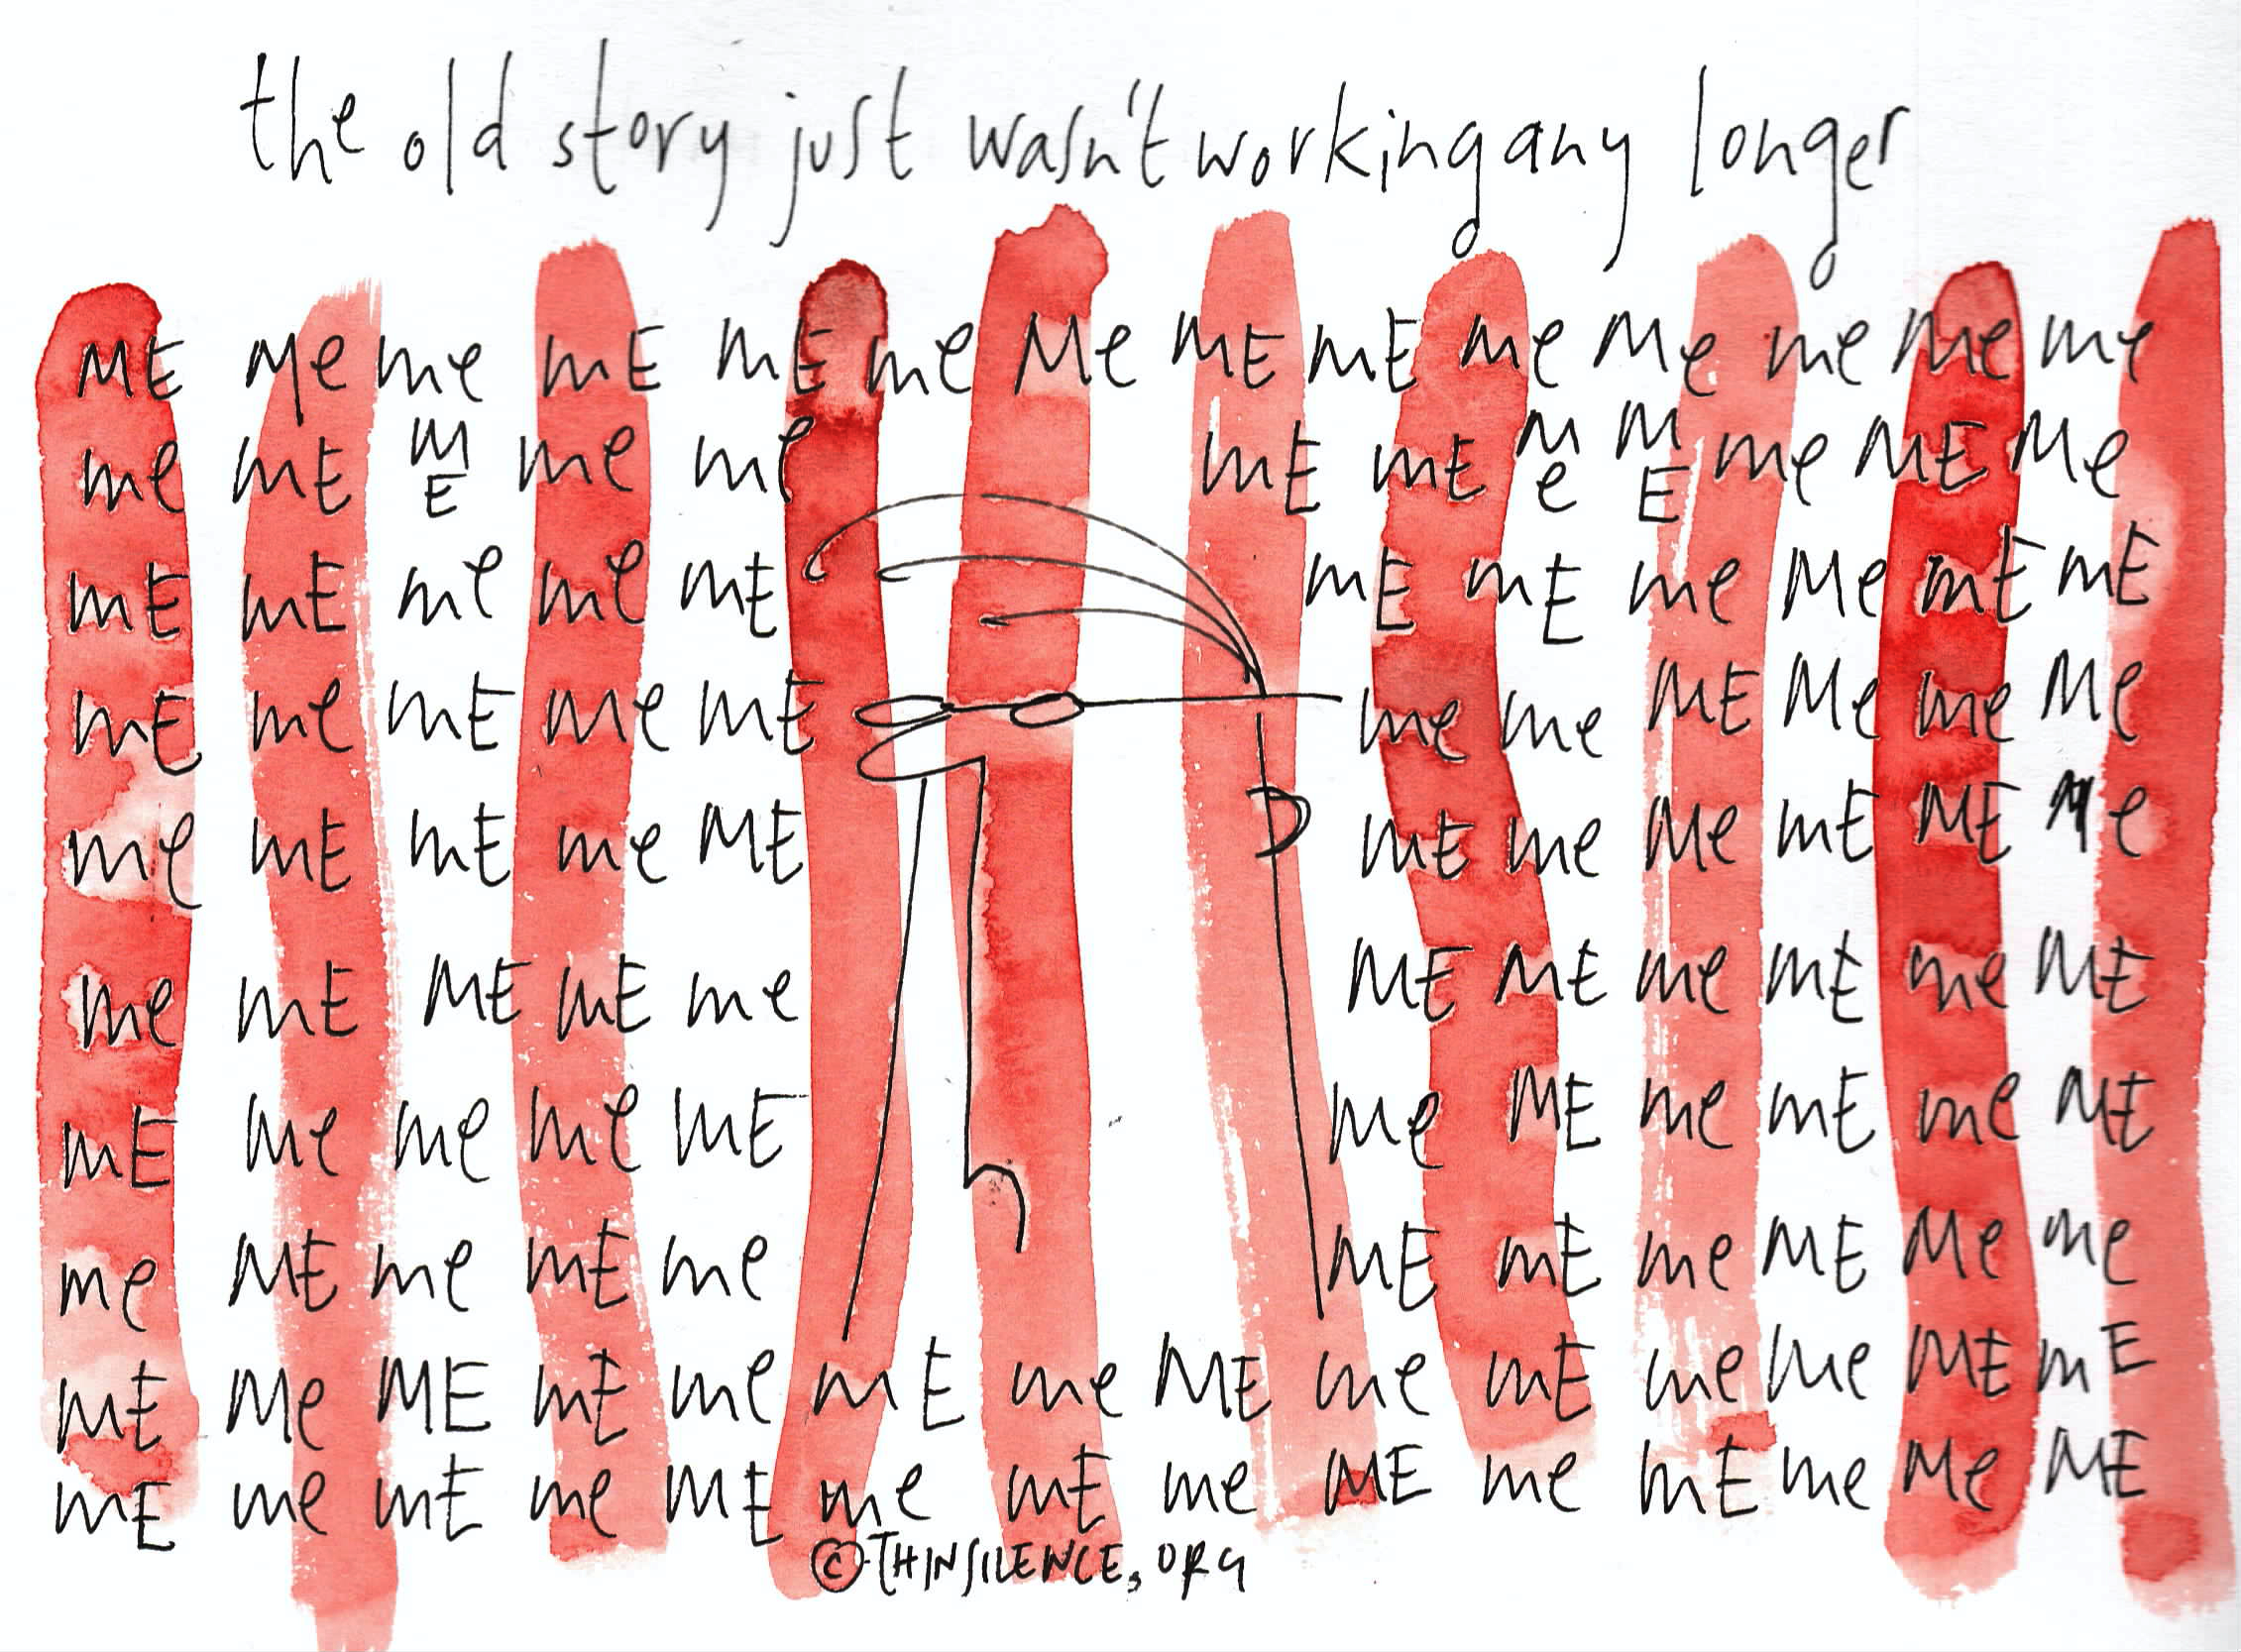 the old story just wasn't working any longer
ME Me me mE mE me Me mE mE me Me me me me
me mE ME me me mE mE Me ME me ME Me
mE mE me me mE mE mE me Me mE mE
mE me mE me mE me me mE Me me Me
me mE mE me ME mE me Me mE ME Me
me mE ME mE me ME ME me mE me ME
mE Me me me mE Me ME me mE me ME
me ME me mE me ME mE me ME Me me
ME Me ME mE me mE me ME me mE me me ME mE
mE me mE me ME me mE me ME me mE me Me ME
© THINSILENCE.ORG